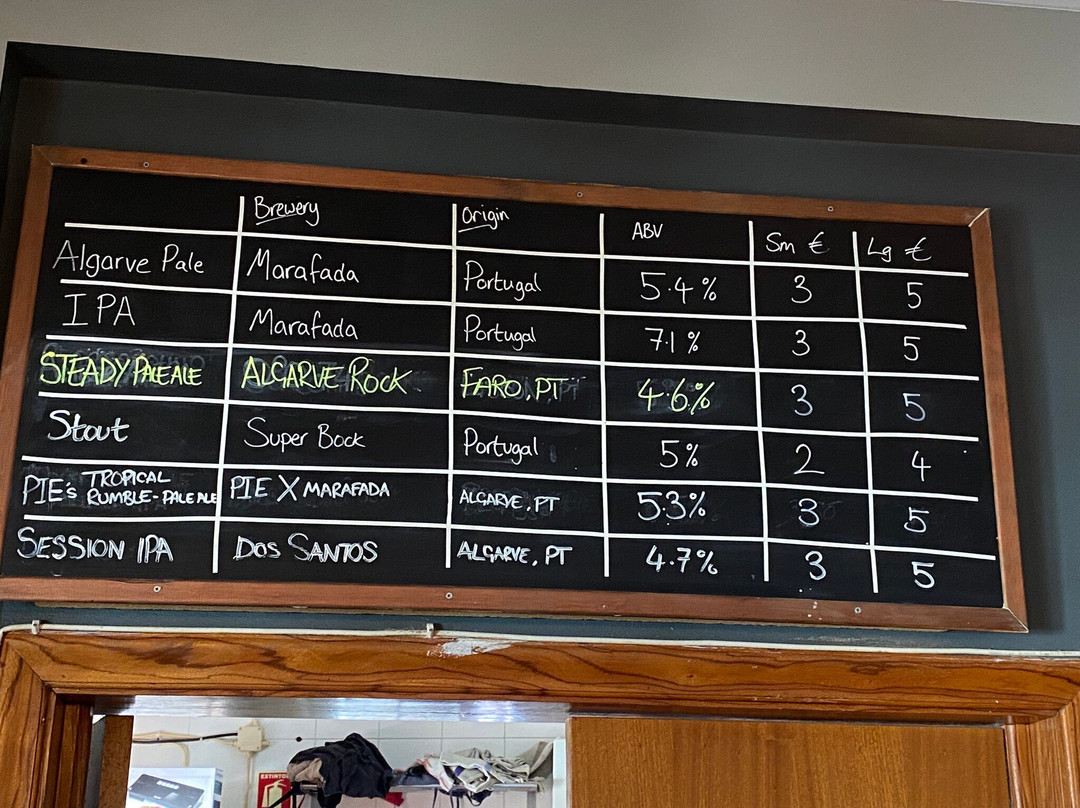 Brewery Origin ABV Sm € Lg €
Algarve Pale Marafada Portugal 5.4% 3 5
IPA Marafada Portugal 7.1% 3 5
STEADY PALE ALE ALGARVE ROCK FARO, PT 4.6% 3 5
Stout Super Bock Portugal 5% 2 4
PIE's TROPICAL RUMBLE-PALE ALE PIE X MARAFADA ALGARVE, PT 5.3% 3 5
SESSION IPA DOS SANTOS ALGARVE, PT 4.7% 3 5
EXTINTOR